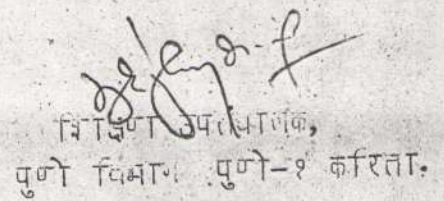 शिक्षण उपसंचालक,
पुणे विभाग पुणे-१ करिता.